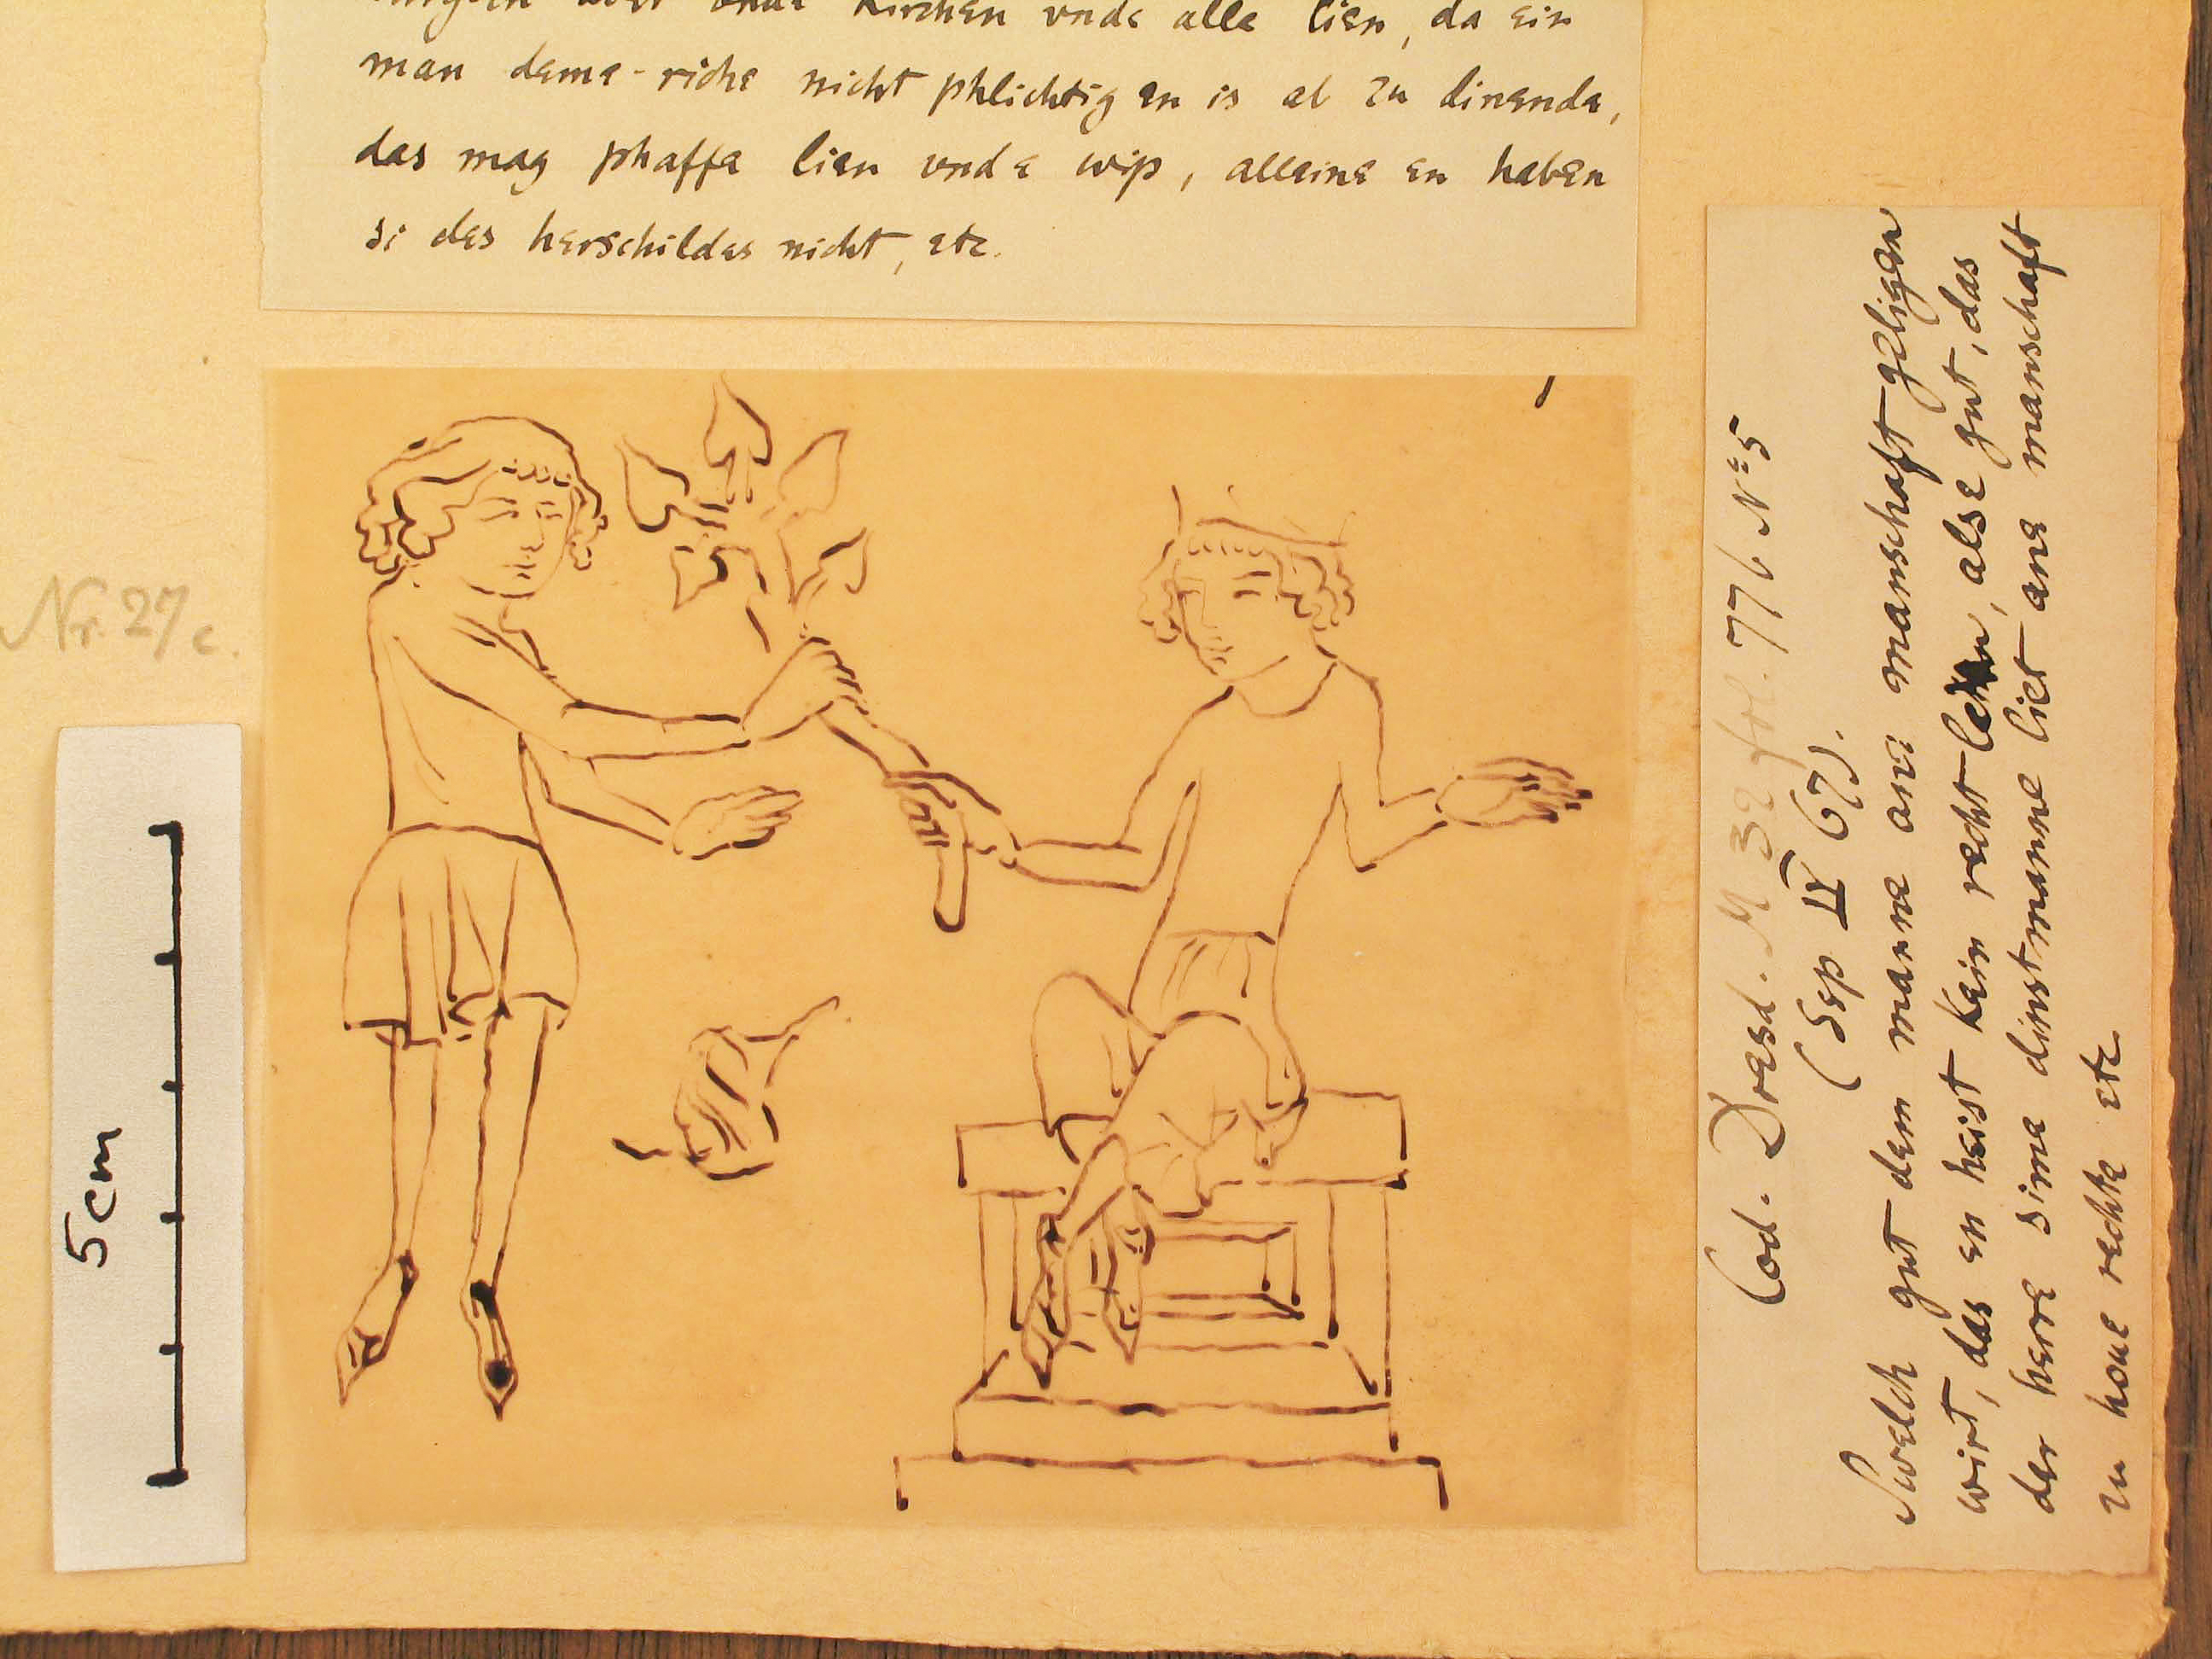 kirchen vnde alle lien, da ein
man deme riche nicht phlichtig en is ab zu dinende,
das mag phaffe lien vnde wip, alleine en haben
si des herschildes nicht, etc.
Nr. 27 c.
5cm
Cod. Dresd. M 32 fol. 77 b. No 5
(Ssp IV 67).
Swelch gut dem manne ane manschaft geligen
wirt, das en heist kein recht len, alse gut, das
der herre sime dinstmanne liet ane manschaft
zu houe rechte etc